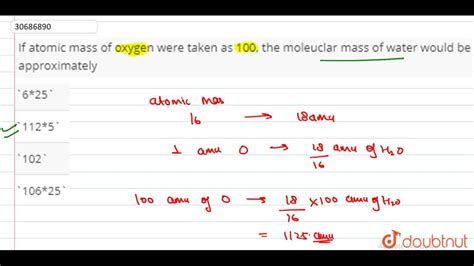 30686890
If atomic mass of oxygen were taken as 100, the moleuclar mass of water would be
approximately
`6*25`
`112*5`
`102`
`106*25`
atomic mas
16 → 18 amu
1 amu O → 18/16 amu of H₂O
100 amu of O → 18/16 × 100 amu of H₂O
= 1125 amu
doubtnut